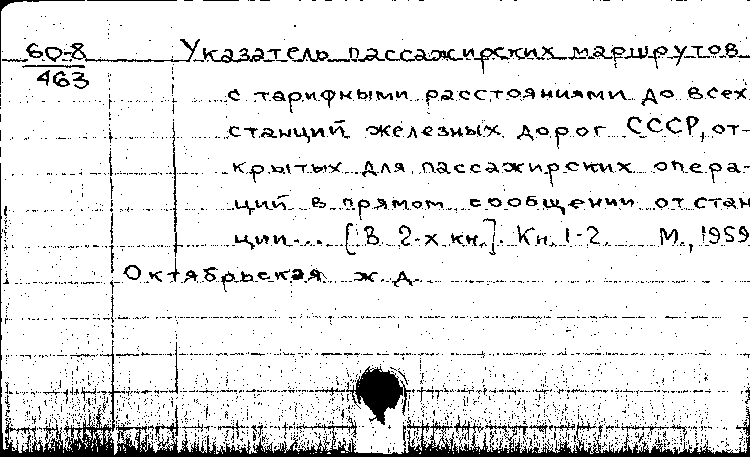 60-8
463
Указатель пассажирских маршрутов
с тарифными расстояниями до всех
станций железных дорог СССР, от-
крытых для пассажирских опера-
ций в прямом сообщении от стан
ции... [В 2-х кн.]. Кн. 1-2. М., 1959
Октябрьская ж. д.